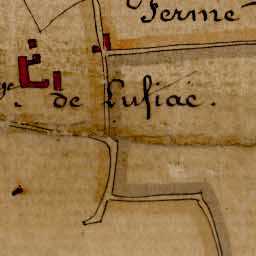 Ferme
de Lusiac.